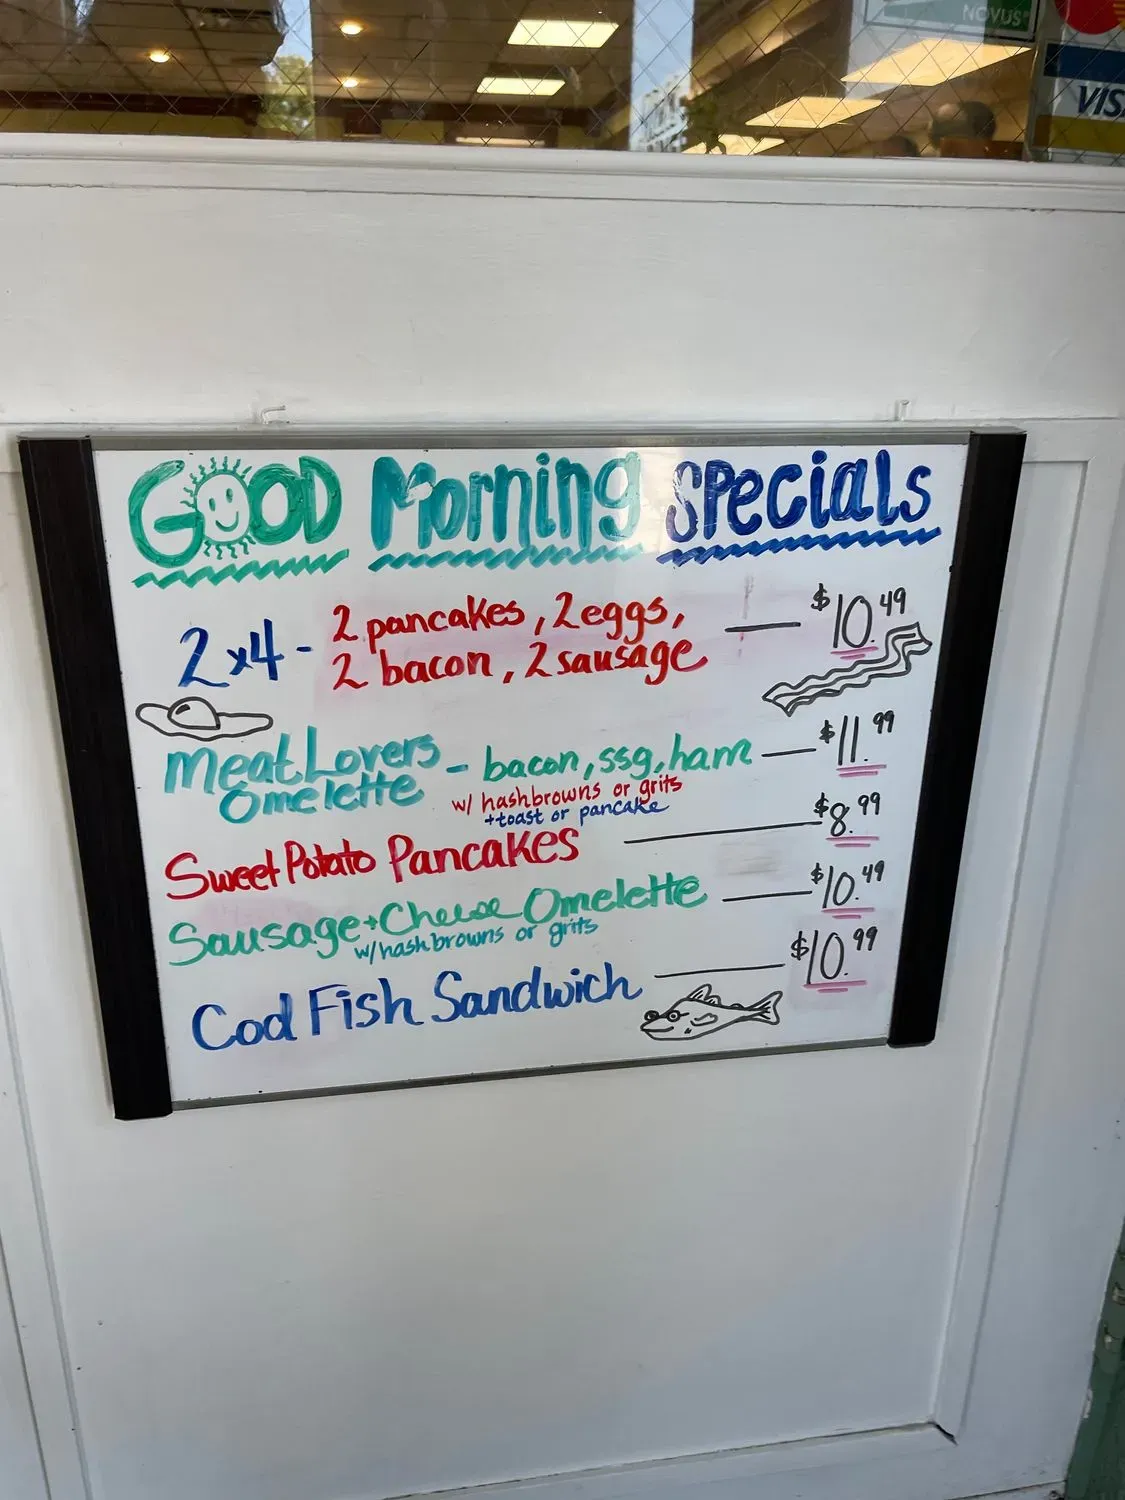 NOVUS
VISA
GOOD Morning Specials
2x4 - 2 pancakes, 2 eggs, $10.49
2 bacon, 2 sausage
Meat Lovers - bacon, ssg, ham $11.99
Omelette w/ hashbrowns or grits
+toast or pancake
Sweet Potato Pancakes $8.99
Sausage + Cheese Omelette $10.49
w/hashbrowns or grits
Cod Fish Sandwich $10.99